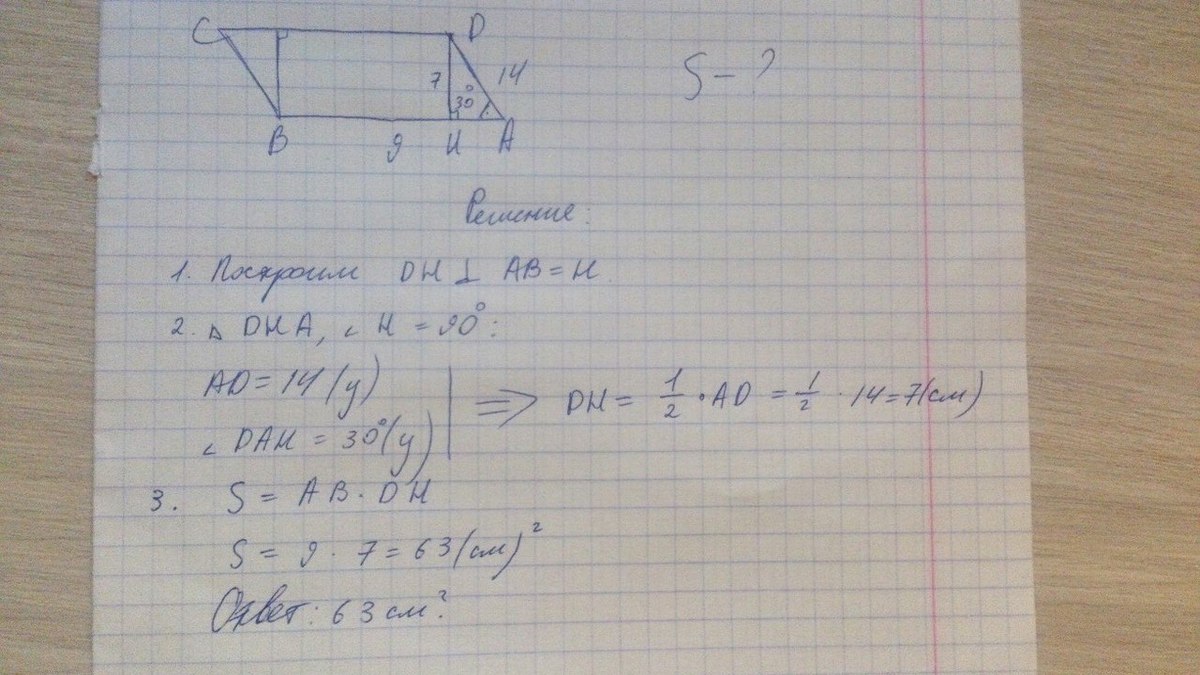 C D S - ?
7 14
30°
B 9 H A
Решение:
1. Построим DH ⊥ AB = H.
2. △ DHA, ∠ H = 90°:
AD = 14 (у)
∠ DAH = 30° (у)
⇒ DH = 1/2 · AD = 1/2 · 14 = 7 (см)
3. S = AB · DH
S = 9 · 7 = 63 (см)²
Ответ: 63 см².